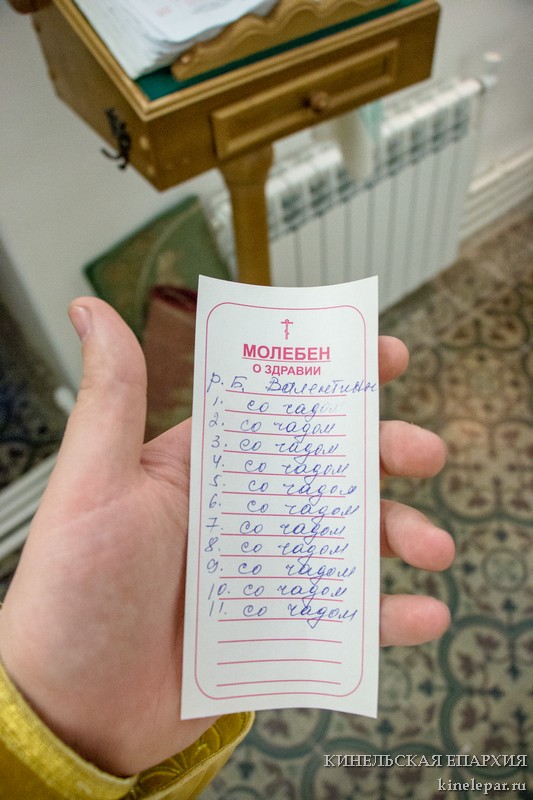 МОЛЕБЕН
О ЗДРАВИИ
р. Б. Валентины
1. со чадом
2. со чадом
3. со чадом
4. со чадом
5. со чадом
6. со чадом
7. со чадом
8. со чадом
9. со чадом
10. со чадом
11. со чадом
КИНЕЛЬСКАЯ ЕПАРХИЯ
kinelepar.ru